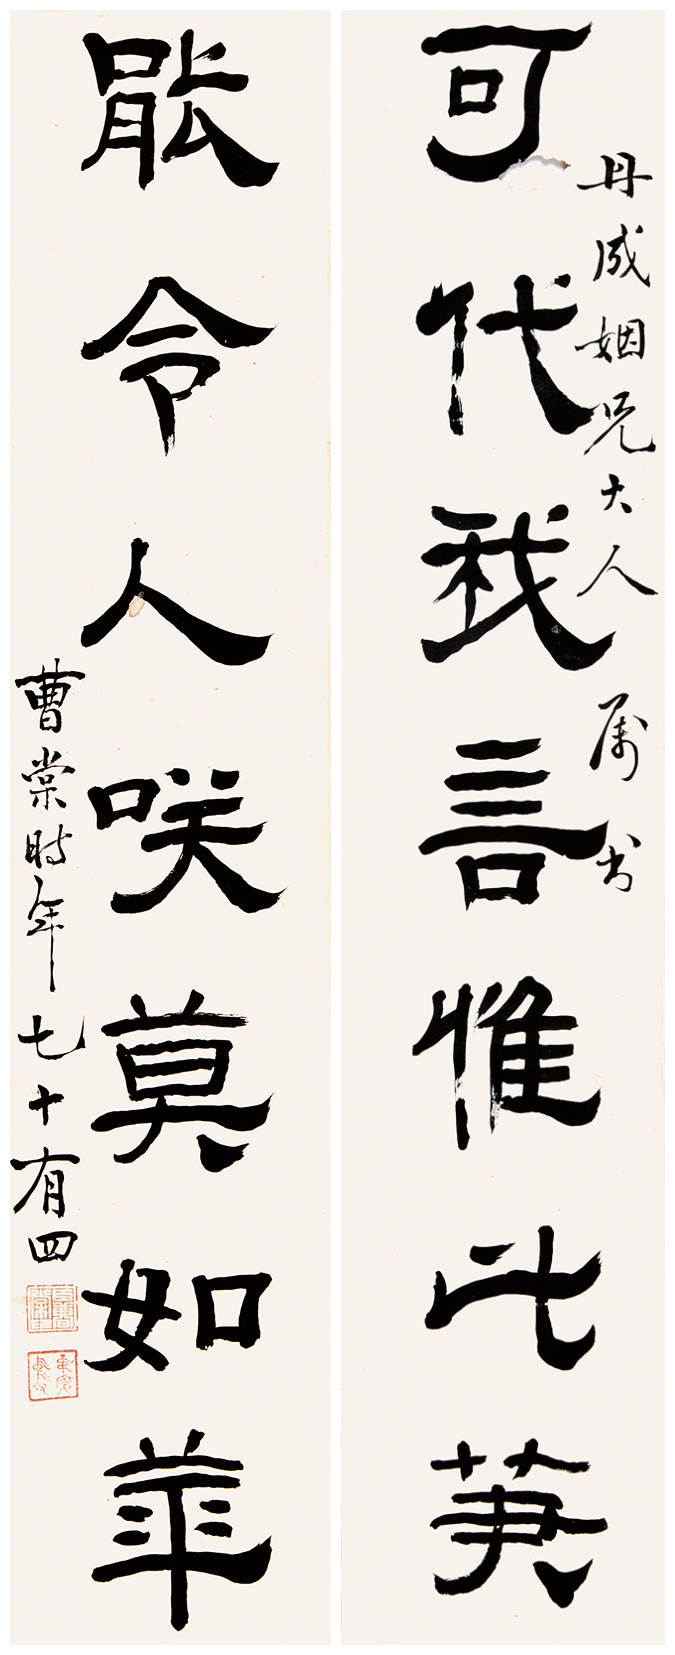 丹成姻兄大人 属书
可代我言惟此
能令人咲莫如華
曹棠时年七十有四